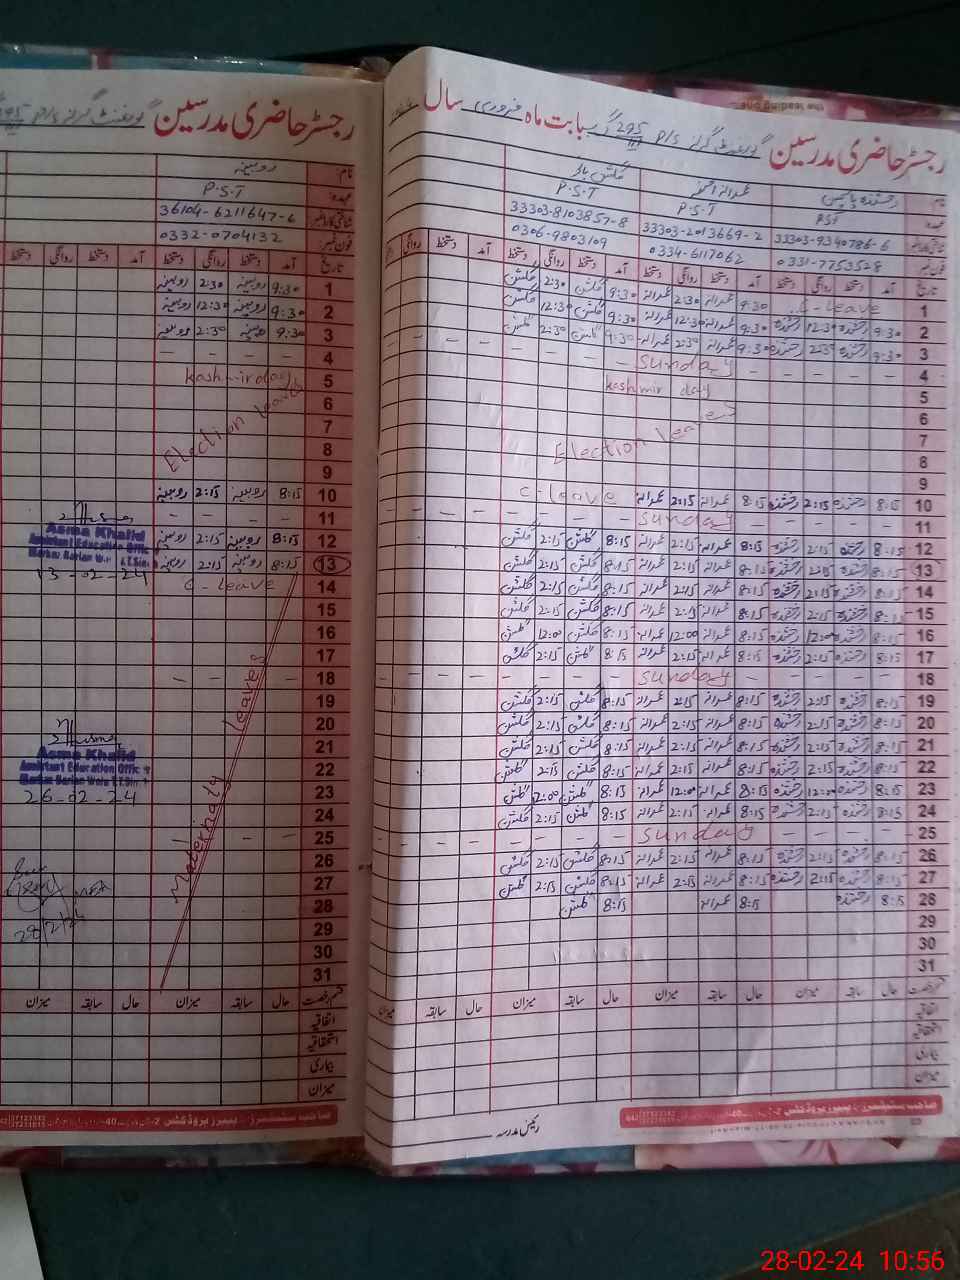 رجسٹر حاضری مدرسین گورنمنٹ گرلز P/S 295 گ ب بابت ماہ فروری سال
نام رخشندہ یاسمین
عہدہ PST P.S.T گلشن P.S.T
شناختی کارڈ نمبر 33303-9340786-6 33303-2013669-2 33303-8103857-8
فون نمبر 0331-7753528 0334-6117062 0306-9803109
تاریخ آمد دستخط روانگی دستخط آمد دستخط روانگی دستخط آمد دستخط روانگی دستخط روانگی
1 C-leave 9:30 عمرانہ 2:30 عمرانہ 9:30 گلشن 2:30 گلشن
2 9:30 رخشندہ 12:30 رخشندہ 9:30 عمرانہ 12:30 عمرانہ 9:30 گلشن 12:30 گلشن
3 9:30 رخشندہ 2:30 رخشندہ 9:30 عمرانہ 2:30 عمرانہ 9:30 گلشن 2:30 گلشن
4 Sunday
5 kashmir day
6
7 Election leaves
8
9
10 8:15 رخشندہ 2:15 رخشندہ 8:15 عمرانہ 2:15 عمرانہ C-leave
11 Sunday
12 8:15 رخشندہ 2:15 رخشندہ 8:15 عمرانہ 2:15 عمرانہ 8:15 گلشن 2:15 گلشن
13 8:15 رخشندہ 2:15 رخشندہ 8:15 عمرانہ 2:15 عمرانہ 8:15 گلشن 2:15 گلشن
14 8:15 رخشندہ 2:15 رخشندہ 8:15 عمرانہ 2:15 عمرانہ 8:15 گلشن 2:15 گلشن
15 8:15 رخشندہ 2:15 رخشندہ 8:15 عمرانہ 2:15 عمرانہ 8:15 گلشن 2:15 گلشن
16 8:15 رخشندہ 12:00 رخشندہ 8:15 عمرانہ 12:00 عمرانہ 8:15 گلشن 12:00 گلشن
17 8:15 رخشندہ 2:15 رخشندہ 8:15 عمرانہ 2:15 عمرانہ 8:15 گلشن 2:15 گلشن
18 Sunday
19 8:15 رخشندہ 2:15 رخشندہ 8:15 عمرانہ 2:15 عمرانہ 8:15 گلشن 2:15 گلشن
20 8:15 رخشندہ 2:15 رخشندہ 8:15 عمرانہ 2:15 عمرانہ 8:15 گلشن 2:15 گلشن
21 8:15 رخشندہ 2:15 رخشندہ 8:15 عمرانہ 2:15 عمرانہ 8:15 گلشن 2:15 گلشن
22 8:15 رخشندہ 2:15 رخشندہ 8:15 عمرانہ 2:15 عمرانہ 8:15 گلشن 2:15 گلشن
23 8:15 رخشندہ 12:00 رخشندہ 8:15 عمرانہ 12:00 عمرانہ 8:15 گلشن 12:00 گلشن
24 8:15 رخشندہ 2:15 رخشندہ 8:15 عمرانہ 2:15 عمرانہ 8:15 گلشن 2:15 گلشن
25 Sunday
26 8:15 رخشندہ 2:15 رخشندہ 8:15 عمرانہ 2:15 عمرانہ 8:15 گلشن 2:15 گلشن
27 8:15 رخشندہ 2:15 رخشندہ 8:15 عمرانہ 2:15 عمرانہ 8:15 گلشن 2:15 گلشن
28 8:15 رخشندہ 8:15 عمرانہ 8:15 گلشن
29
30
31
قسم رخصت حال سابقہ میزان حال سابقہ میزان حال سابقہ میزان حال سابقہ میزان
اتفاقیہ
استحقاقیہ
بیماری
میزان
رئیس مدرسہ
رجسٹر حاضری مدرسین گورنمنٹ گرلز P/S 295
نام روبینہ
عہدہ P.S.T
شناختی کارڈ نمبر 36104-6211647-6
فون نمبر 0332-0704132
تاریخ آمد دستخط روانگی دستخط آمد دستخط روانگی دستخط
1 9:30 روبینہ 2:30 روبینہ
2 9:30 روبینہ 12:30 روبینہ
3 9:30 روبینہ 2:30 روبینہ
4
5 kashmir day
6
7 Election leaves
8
9
10 8:15 روبینہ 2:15 روبینہ
11
12 8:15 روبینہ 2:15 روبینہ
13 8:15 روبینہ 2:15 روبینہ
14 C-leave
15
16
17
18
19
20
21
22
23
24
25
26
27
28
29
30
31
Maternaty leaves
Asma Khalid
Assistant Education Offic
13-02-24
Asma Khalid
Assistant Education Offic
26-02-24
MEA
28/2/24
قسم رخصت حال سابقہ میزان حال سابقہ میزان
اتفاقیہ
استحقاقیہ
بیماری
میزان
28-02-24 10:56